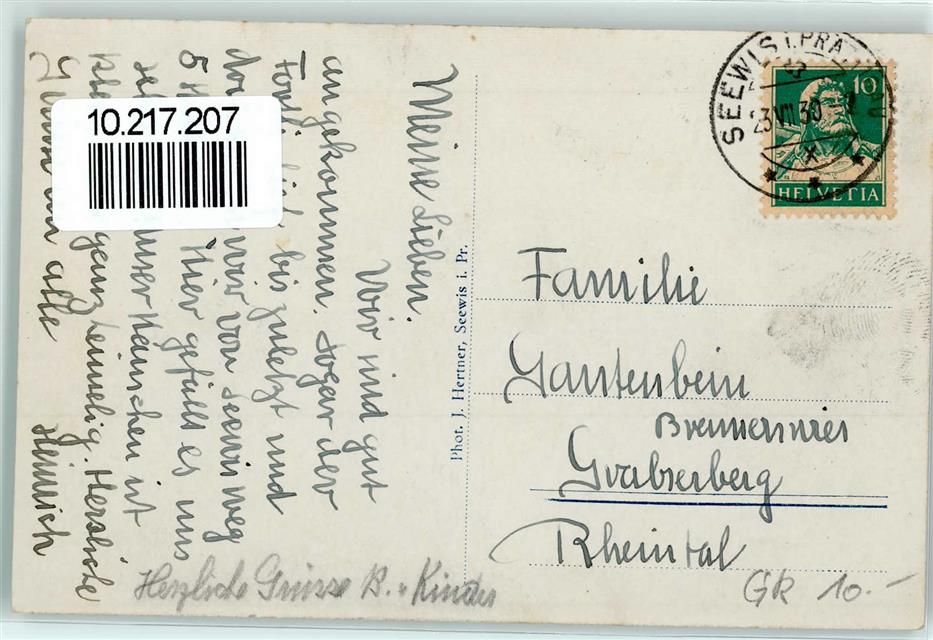 Meine Lieben.
Wir sind gut
angekommen. Sogar der
bis zuletzt und
wir von Seewis weg
Hier gefällt es uns
unser Häuschen ist
ganz heimelig. Herzliche
alle
Heinrich
Herzliche Grüsse B. u Kinder
Phot. J. Hertner, Seewis i. Pr.
SEEWIS i. PRÄ
23 VII 30
10
HELVETIA
Familie
Gantenbein
Grabserberg
Rheintal
GR 10.-
10.217.207